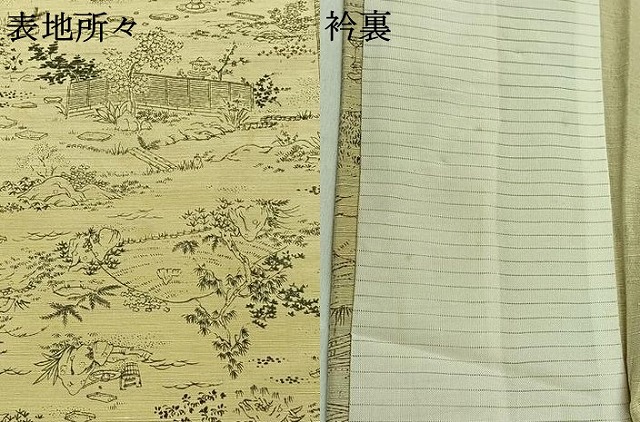 表地所々
衿裏